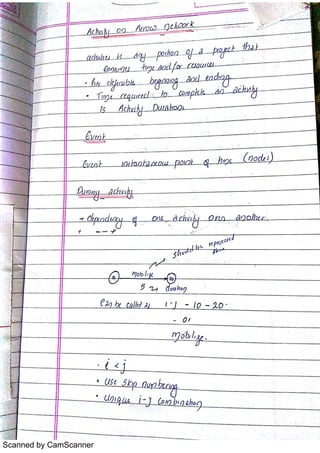 Activity on Arrow network
activities is any portion of a project that
consumes time and/or resources
• has definable beginning and ending
• Time required to complete an activity
is Activity Duration.
Event
Event instantaneous point of time (nodes)
Dummy activity
→ dependency of one activity onn another.
should be represented
mobilize
5 24 duration
can be called as i-j - 10-20.
- or
mobilize.
• i < j
• use skip numbering
• unique i-j combination
Scanned by CamScanner